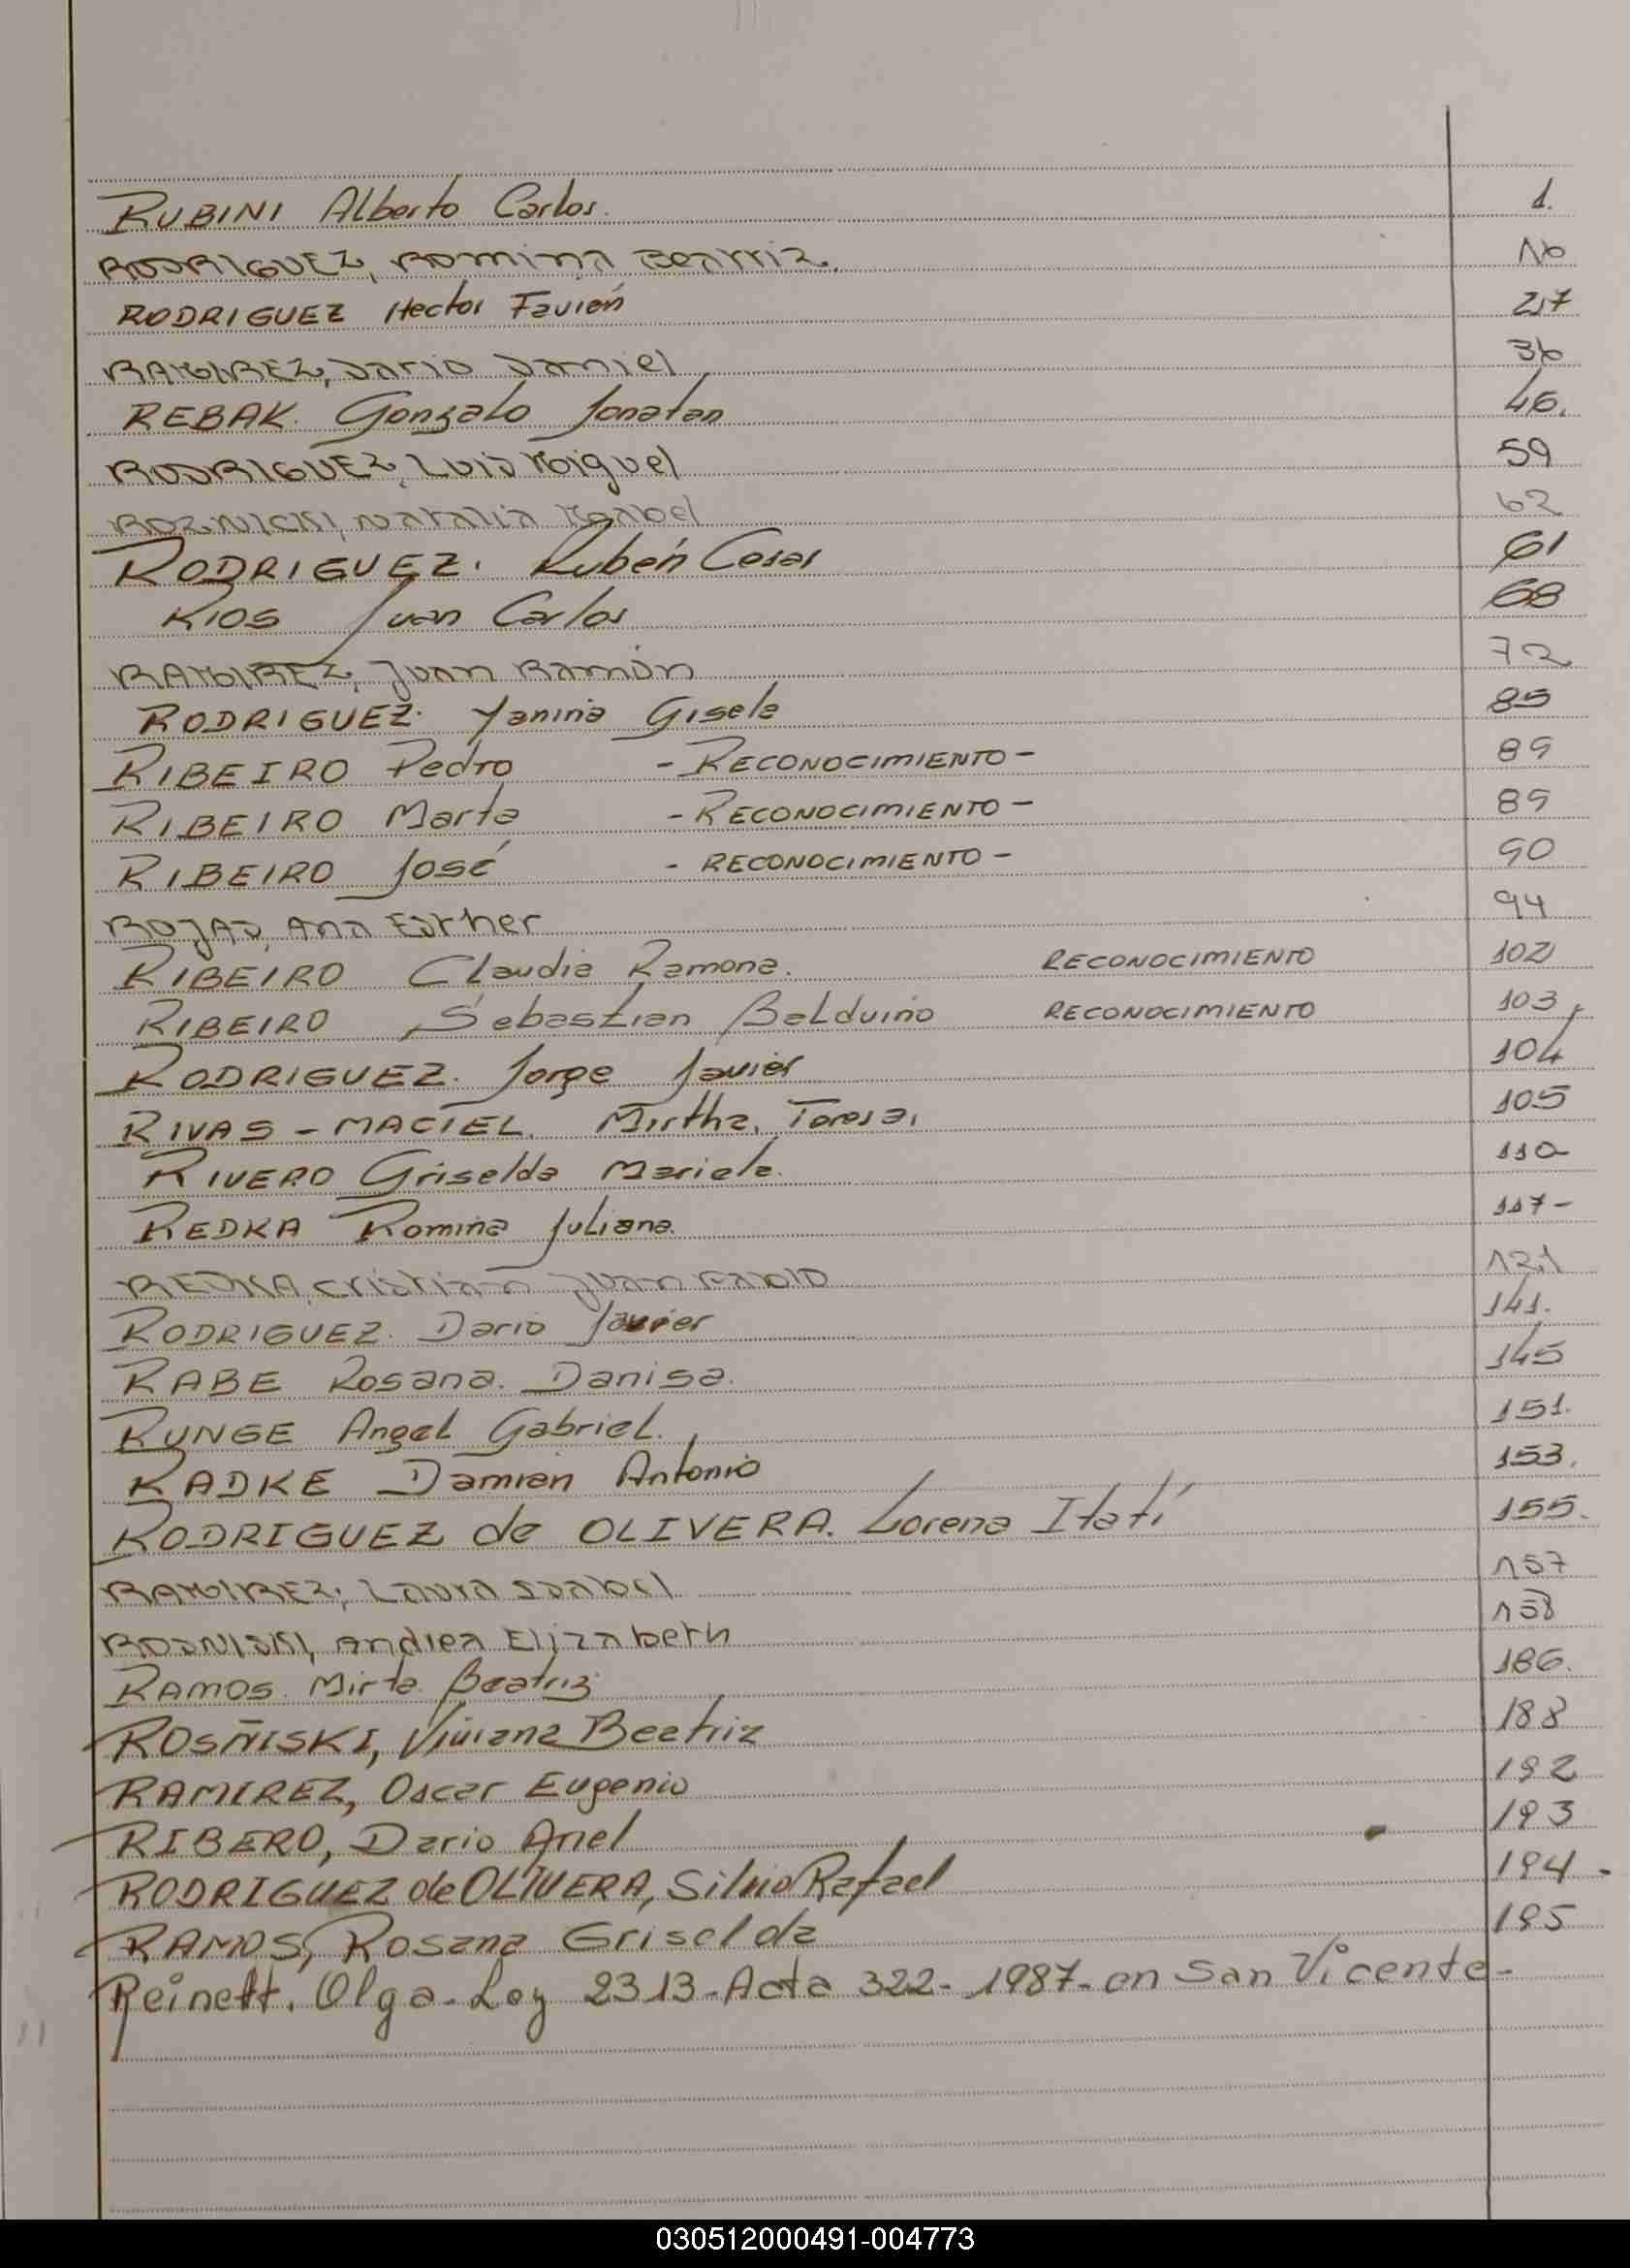 RUBINI Alberto Carlos. 1.
RODRIGUEZ, Romina Beatriz. 16
RODRIGUEZ Hector Favián 27
RAMIREZ, Dario Daniel 36
REBAK. Gonzalo Jonatan 46.
RODRIGUEZ, Luis Miguel 59
ROZNICKI, Natalia Isabel 62
RODRIGUEZ. Rubén Cesar 61
RIOS Juan Carlos 68
RAMIREZ, Juan Ramón 72
RODRIGUEZ. Yanina Gisele 85
RIBEIRO Pedro - RECONOCIMIENTO - 89
RIBEIRO Marta - RECONOCIMIENTO - 89
RIBEIRO José - RECONOCIMIENTO - 90
ROJAS, Ana Esther 94
RIBEIRO Claudia Ramona. RECONOCIMIENTO 102
RIBEIRO Sebastian Balduino RECONOCIMIENTO 103
RODRIGUEZ. Jorge Javier 104
RIVAS - MACIEL. Mirtha. Teresa. 105
RIVERO Griselda Mariela. 110
REDKA Romina Juliana. 117-
REDKA, Cristian Juan Fabio 121
RODRIGUEZ. Dario Javier 141.
RABE Rosana. Danisa. 145
RUNGE Angel Gabriel. 151.
RADKE Damián Antonio 153.
RODRIGUEZ de OLIVERA. Lorena Itatí 155.
RAMIREZ, Laura Isabel 157
ROSNISKI, Andrea Elizabeth 158
RAMOS. Mirta Beatriz 186.
ROSÑISKI, Viviana Beatriz 188
RAMIREZ, Oscar Eugenio 192
RIBERO, Dario Ariel 193
RODRIGUEZ de OLIVERA, Silvio Rafael 194.
RAMOS, Rosana Griselda 195
Reinett. Olga. Ley 2313. Acta 322- 1987- en San Vicente-
030512000491-004773